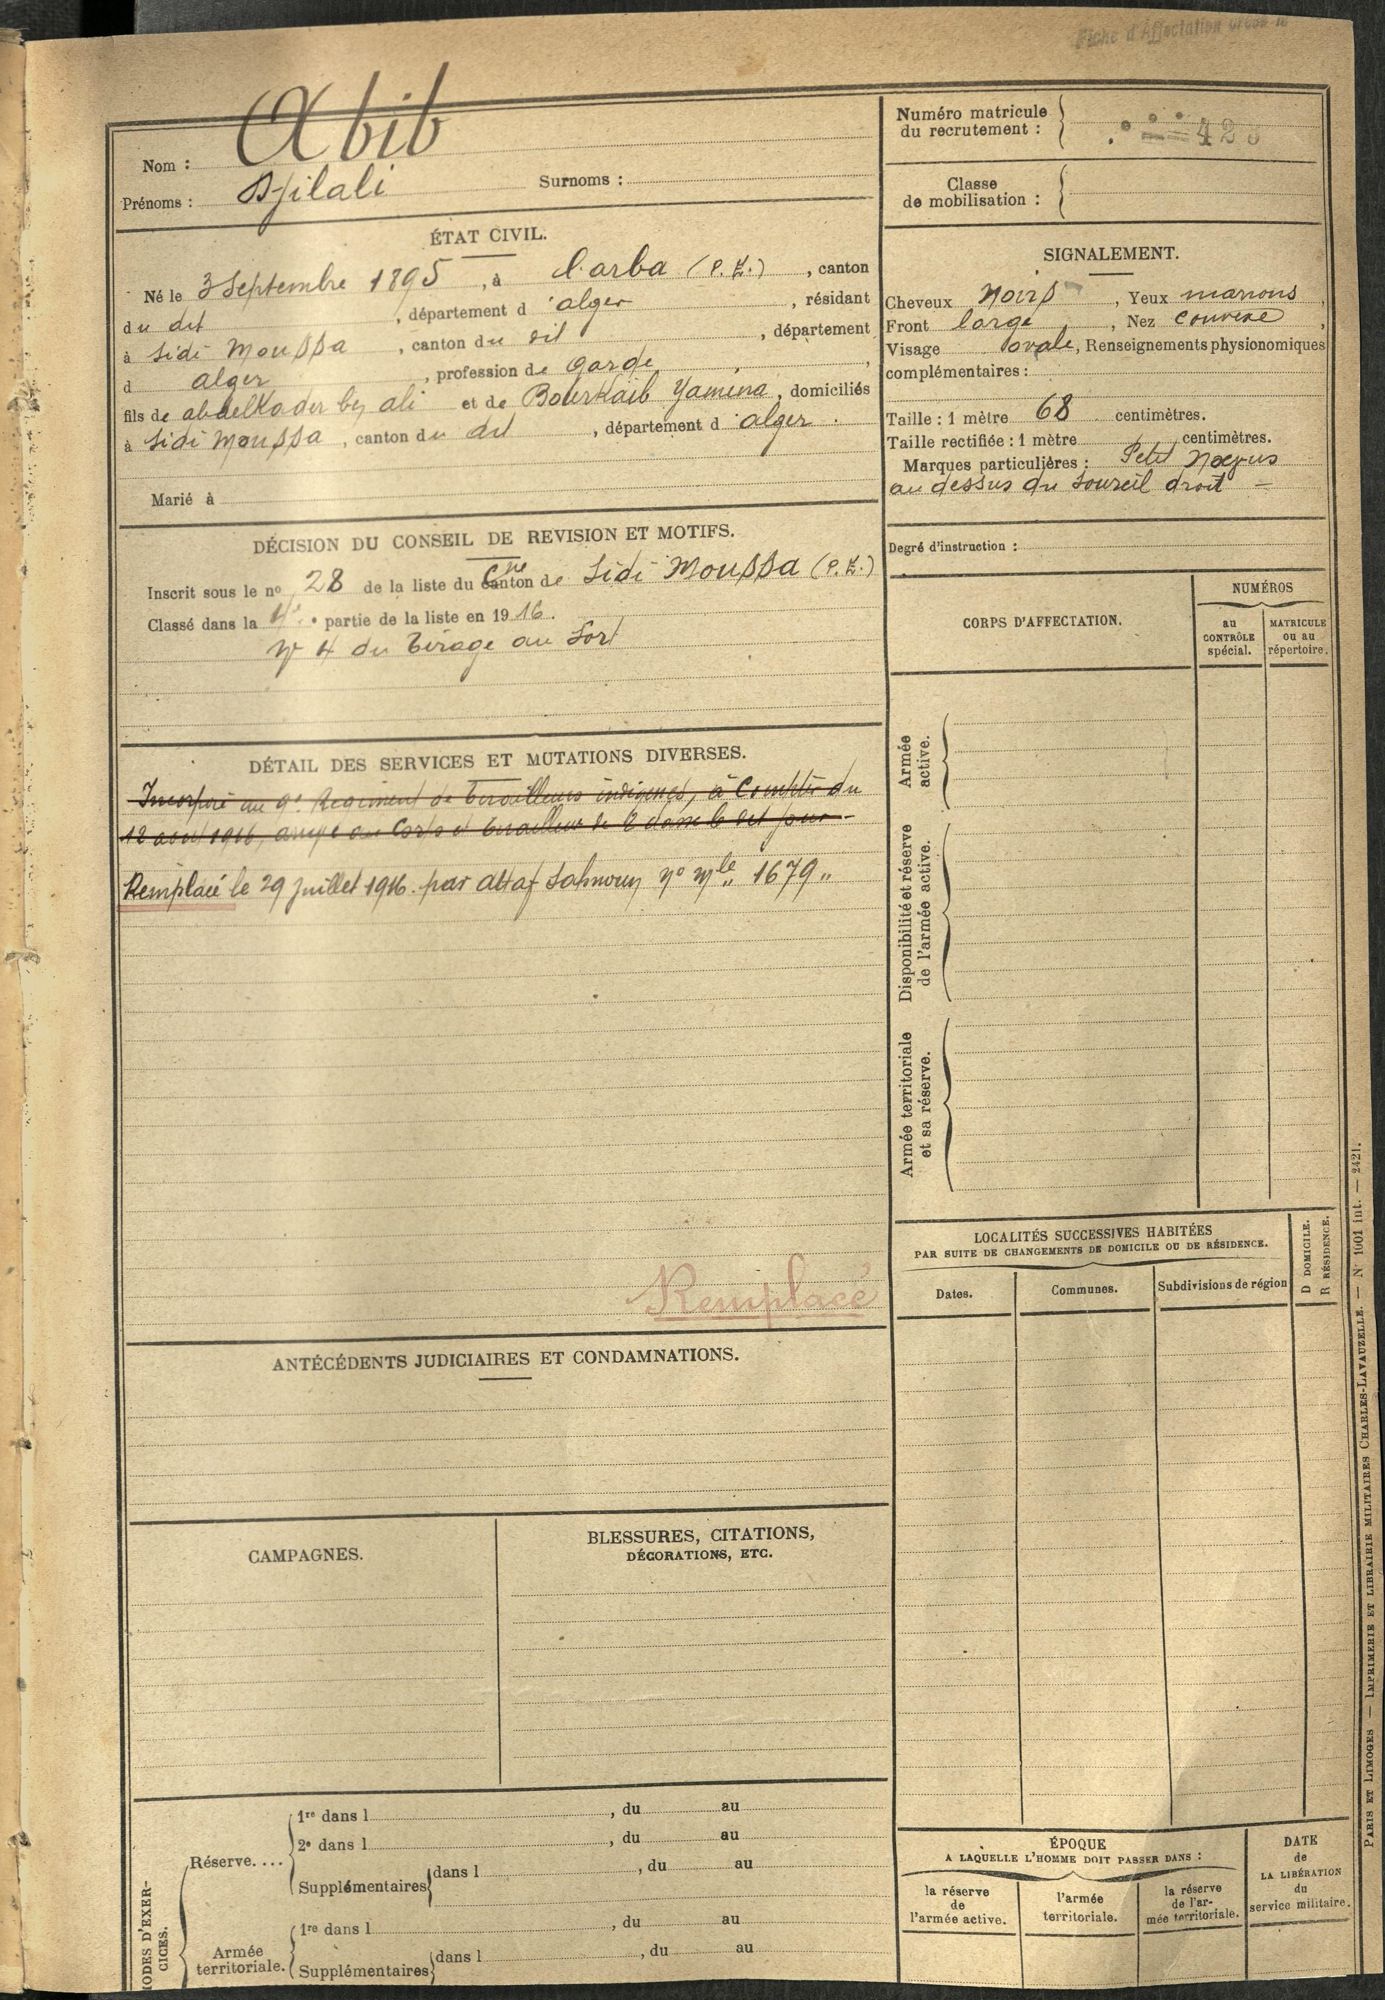 Fiche d'Affectation
Nom : Abib
Prénoms : Djilali Surnoms :
ÉTAT CIVIL.
Né le 3 Septembre 1895, à l'arba (P. E.), canton
du dit, département d'alger, résidant
à Sidi Moussa, canton du dit, département
d alger, profession de garde,
fils de abdelkader ben ali et de Bourkaib Yamina, domiciliés
à Sidi Moussa, canton du dit, département d'alger.
Marié à
DÉCISION DU CONSEIL DE REVISION ET MOTIFS.
Inscrit sous le nº 28 de la liste du canton Cne de Sidi Moussa (P. E.)
Classé dans la 4e partie de la liste en 1916.
Nº 4 du tirage au sort
DÉTAIL DES SERVICES ET MUTATIONS DIVERSES.
Incorporé au 9e Régiment de tirailleurs indigènes, à compter du
12 aout 1916, arrivé au Corps et tirailleur de 2 classe le dit jour
Remplacé le 29 juillet 1916 par attaf Sahnoun Nº Mle 1679
Remplacé
ANTÉCÉDENTS JUDICIAIRES ET CONDAMNATIONS.
CAMPAGNES.
BLESSURES, CITATIONS,
DÉCORATIONS, ETC.
Réserve....
1re dans l , du au
2e dans l , du au
Supplémentaires dans l , du au
Armée
territoriale.
1re dans l , du au
Supplémentaires dans l , du au
IODES D'EXER-
CICES.
Numéro matricule
du recrutement : 42
Classe
de mobilisation :
SIGNALEMENT.
Cheveux Noirs, Yeux marrons,
Front large, Nez convexe,
Visage ovale, Renseignements physionomiques
complémentaires :
Taille : 1 mètre 68 centimètres.
Taille rectifiée : 1 mètre centimètres.
Marques particulières : Petit Noevus
au dessus du sourcil droit
Degré d'instruction :
CORPS D'AFFECTATION.
NUMÉROS
au
CONTRÔLE
spécial.
MATRICULE
ou au
répertoire.
Armée
active.
Disponibilité et réserve
de l'armée active.
Armée territoriale
et sa réserve.
LOCALITÉS SUCCESSIVES HABITÉES
PAR SUITE DE CHANGEMENTS DE DOMICILE OU DE RÉSIDENCE.
D DOMICILE.
R RÉSIDENCE.
Dates.
Communes.
Subdivisions de région
ÉPOQUE
A LAQUELLE L'HOMME DOIT PASSER DANS :
la réserve
de
l'armée active.
l'armée
territoriale.
la réserve
de l'ar-
mée territoriale.
DATE
de
LA LIBÉRATION
du
service militaire.
PARIS ET LIMOGES — IMPRIMERIE ET LIBRAIRIE MILITAIRES CHARLES-LAVAUZELLE. — Nº 1001 int. — 2421.